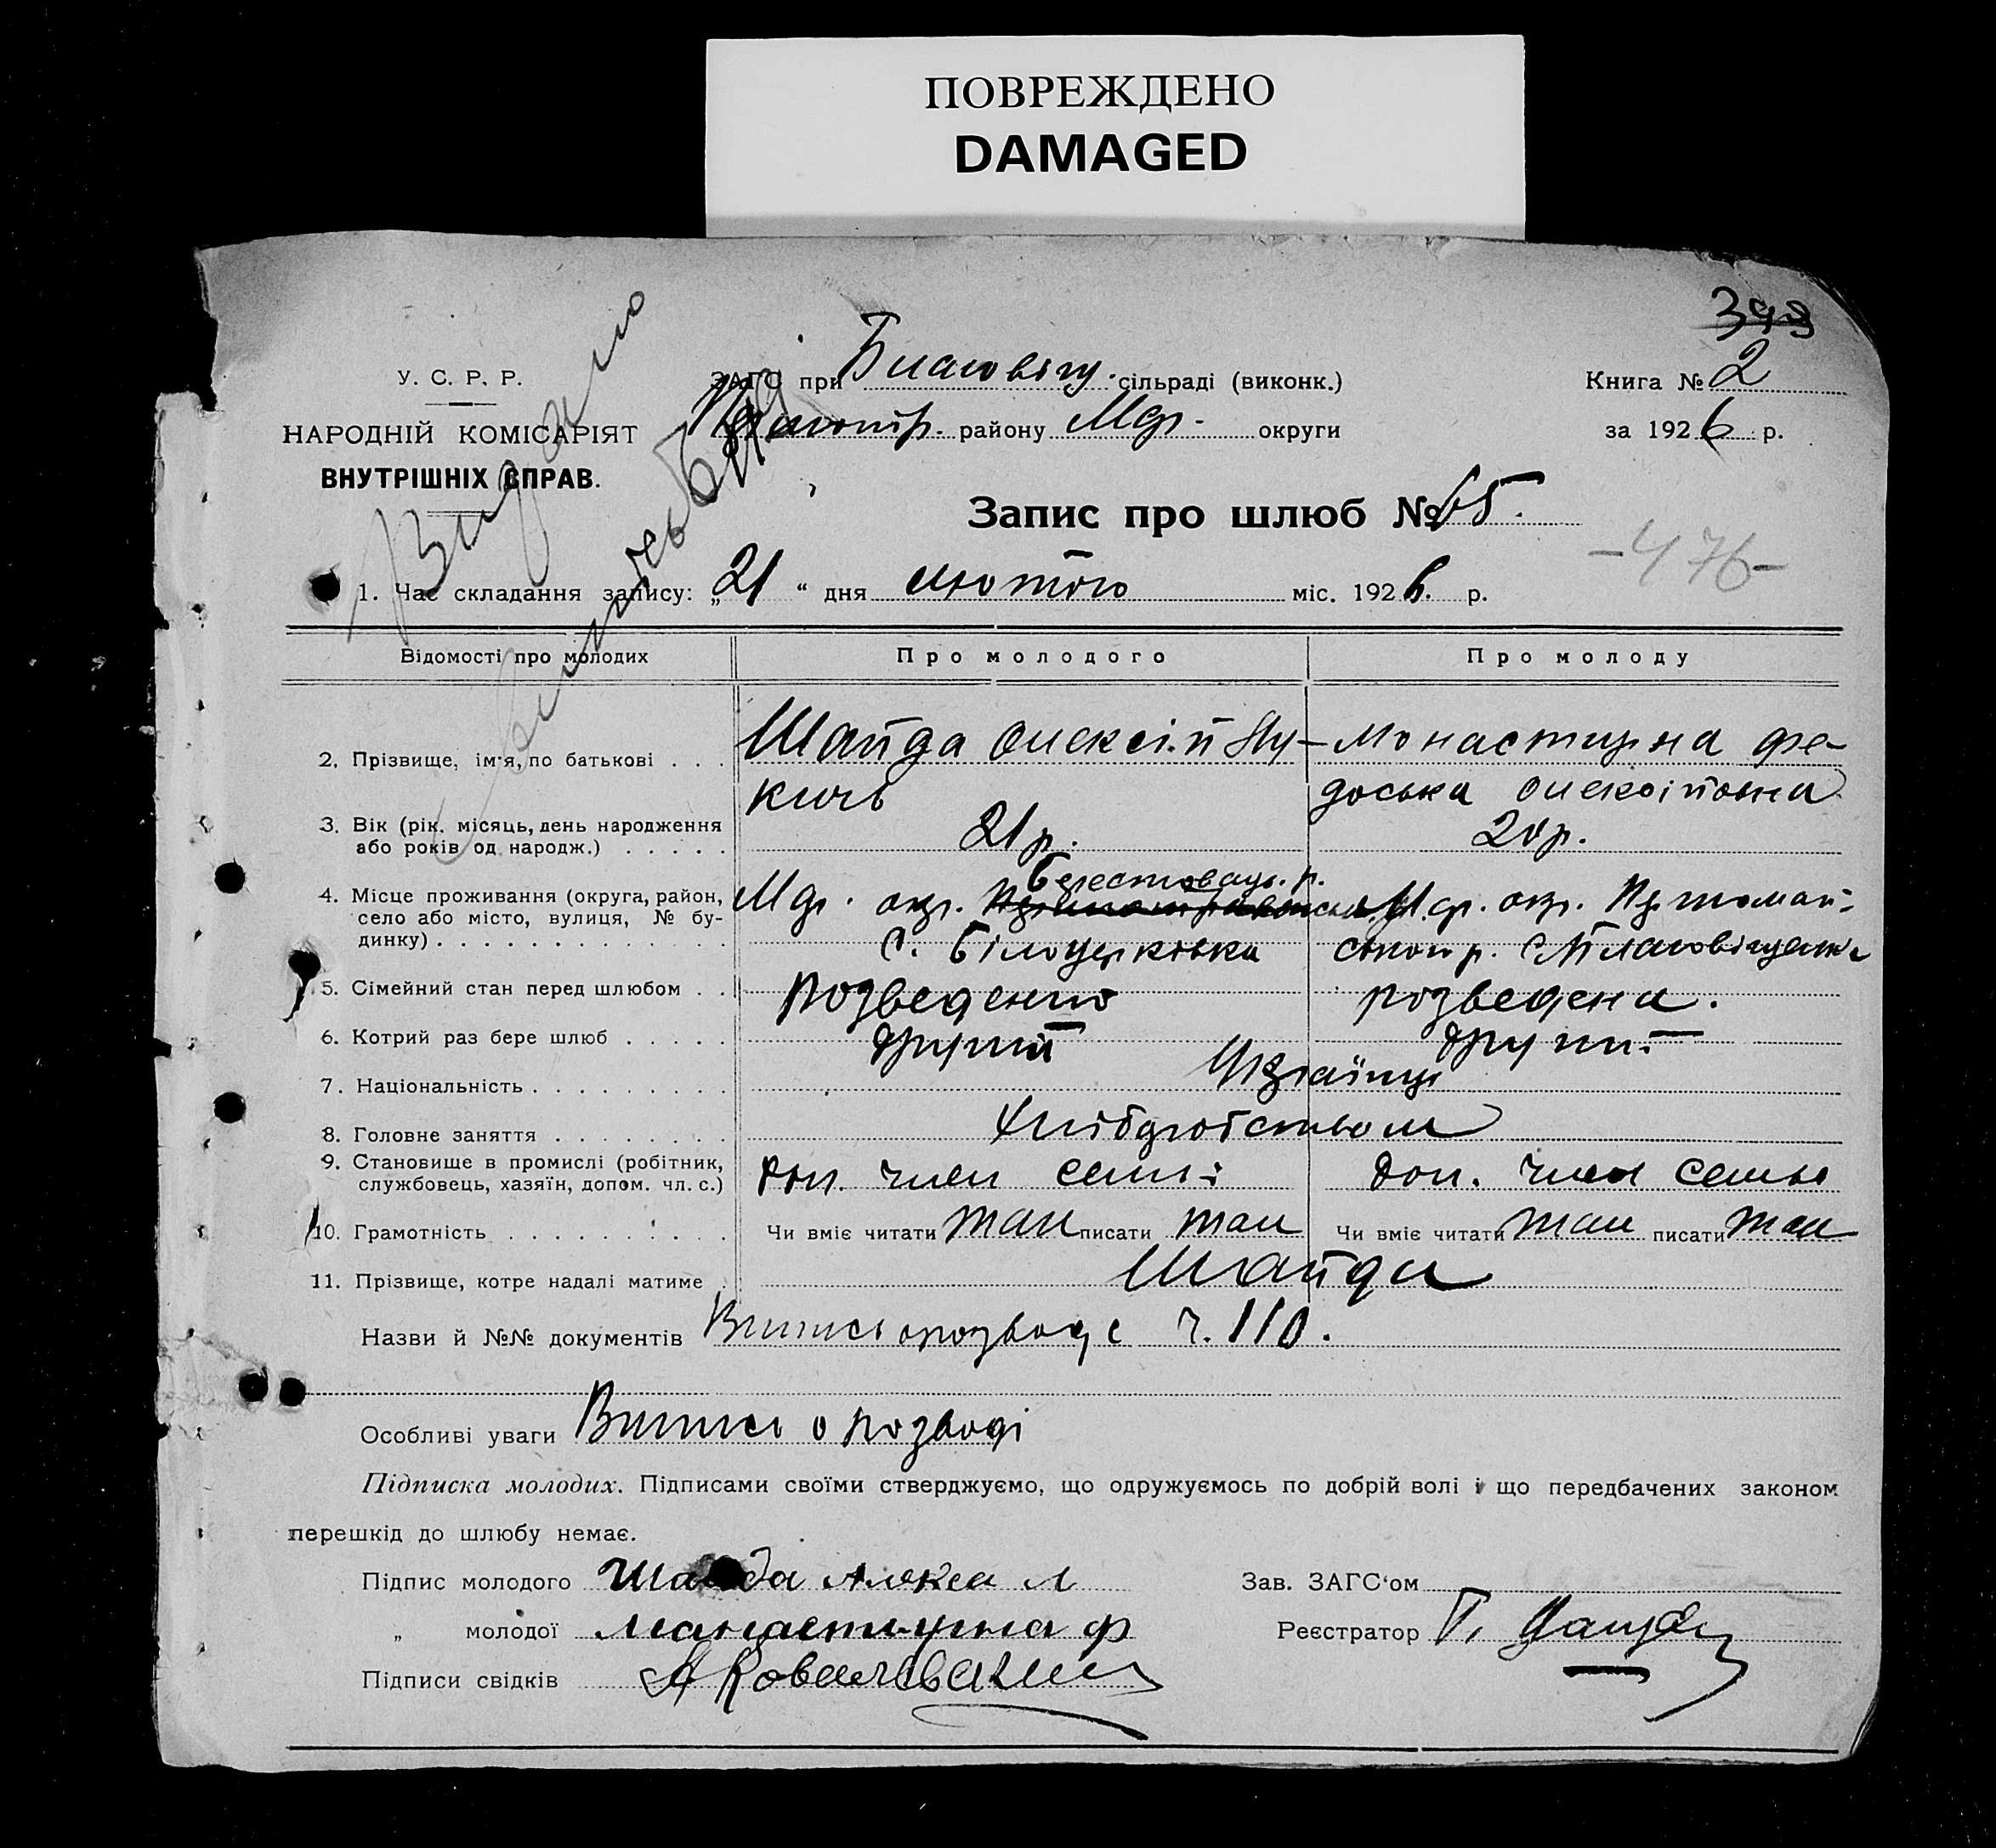 ПОВРЕЖДЕНО
DAMAGED
393
У. С. Р. Р.
НАРОДНІЙ КОМІСАРІЯТ
ВНУТРІШНІХ СПРАВ.
Видано
ЗАГС при Благовіщ. сільраді (виконк.)
району Мар. округи
Книга № 2
за 1926 р.
Запис про шлюб № 65.
-476-
1. Час складання запису: „21“ дня лютого міс. 1926. р.
Відомості про молодих Про молодого Про молоду
2. Прізвище, ім'я, по батькові . . . Шайда Олексій Лу- Монастирна Фе-
кичь доська Олексіївна
3. Вік (рік. місяць, день народження
або років од народж.) . . . . . 21 р. 20 р.
4. Місце проживання (округа, район,
село або місто, вулиця, № бу-
динку) . . . . . . . . . . . . .
Берестовець. р.
Мар. окр. М.ар. окр. Першомай-
с. Білоцерківка ського р. с. Благовіщенка
5. Сімейний стан перед шлюбом . . розведений розведена.
6. Котрий раз бере шлюб . . . . . другий другий
7. Національність . . . . . . . . . Українці
8. Головне заняття . . . . . . . . Хліборобством
9. Становище в промислі (робітник,
службовець, хазяїн, допом. чл. с.) Доп. член семьї Доп. член семьи
10. Грамотність . . . . . . . . . . Чи вміє читати так писати так Чи вміє читати так писати так
11. Прізвище, котре надалі матиме . Шайда
Назви й №№ документів Випись о розводе ч. 110.
Особливі уваги Випись о розводі
Підписка молодих. Підписами своїми стверджуємо, що одружуємось по добрій волі і що передбачених законом
перешкід до шлюбу немає.
Підпис молодого Шайда Алекса Л Зав. ЗАГС'ом
„ молодої Манастирна Ф Реєстратор Г.
Підписи свідків А